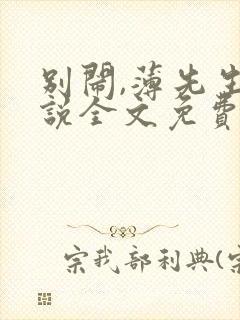 别鬧,薄先生
説全文免費
宗我部利典(宗